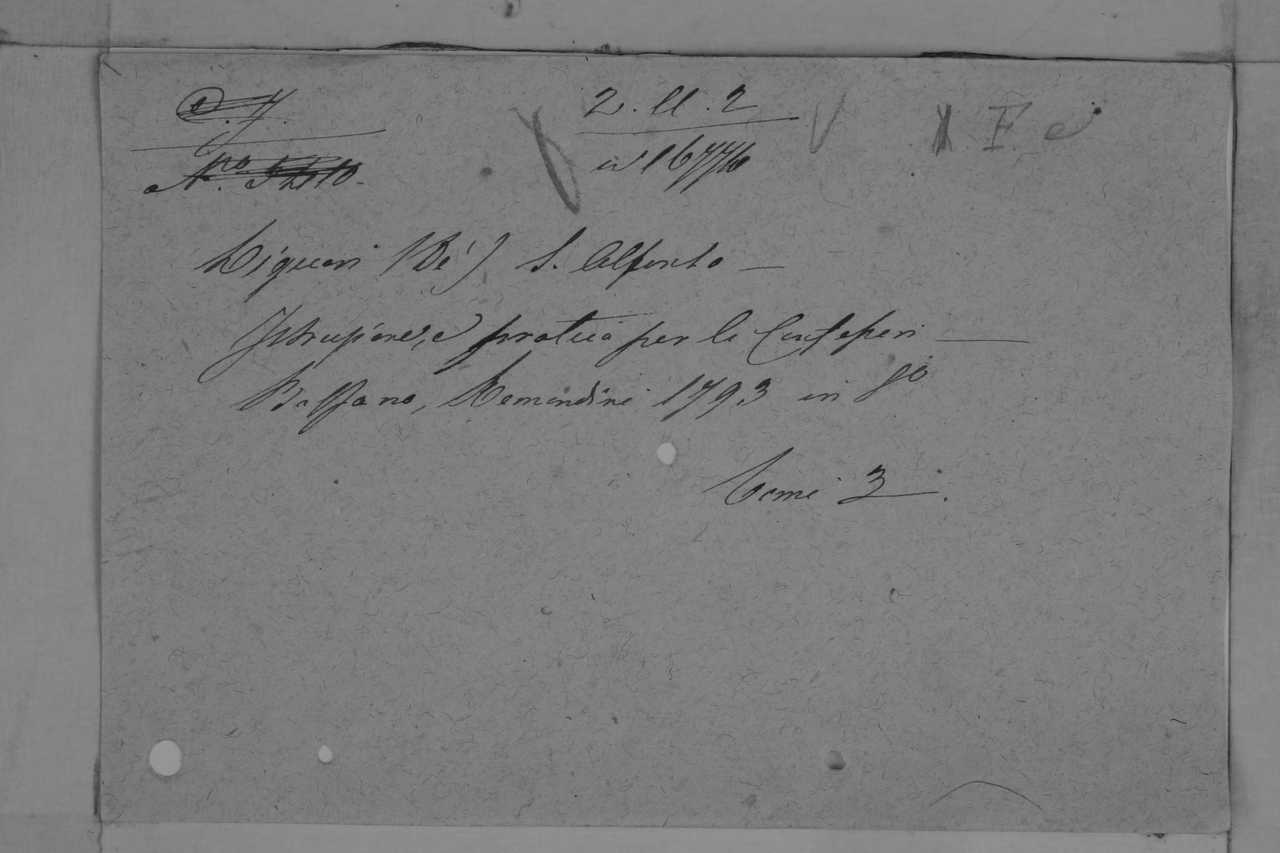 2. U. 2
X. F. e
n° 16776
Liguori (De') S. Alfonso —
Istruzione, e pratica per li Confessori —
Bassano, Remondini 1793 in 8°
Tomi 3.